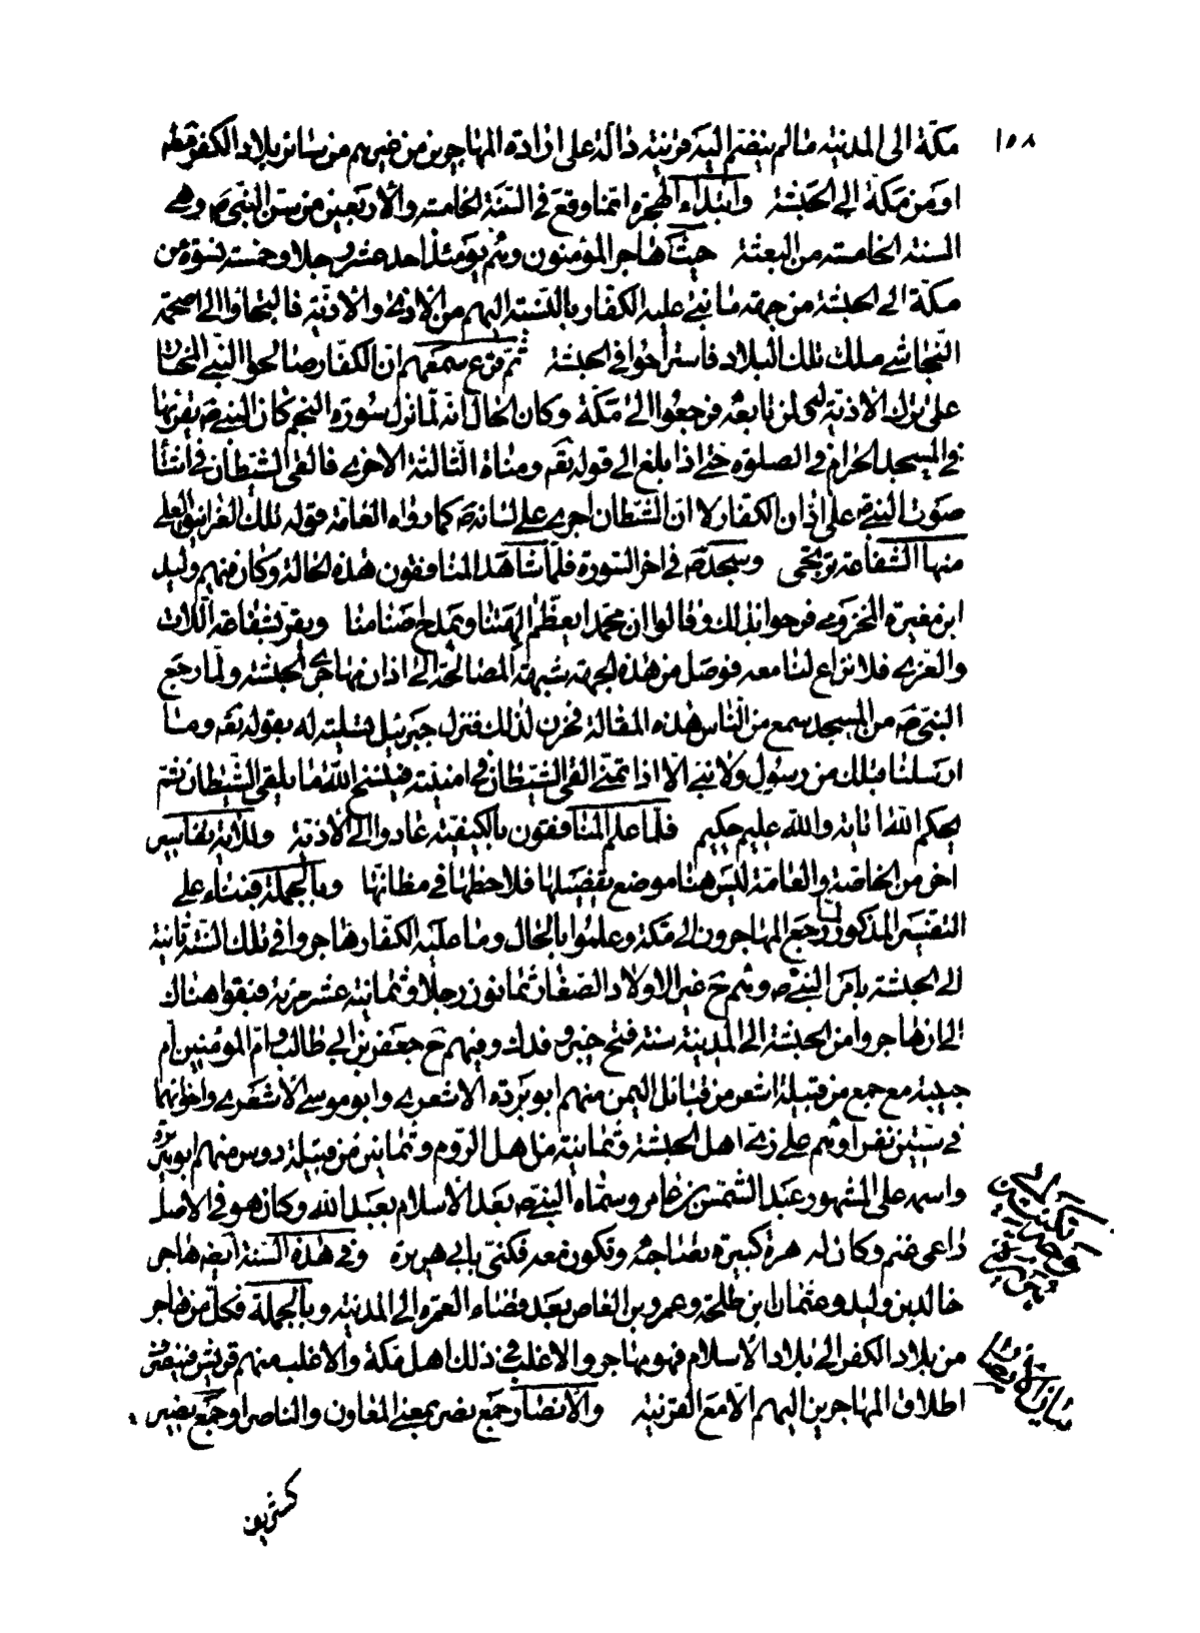 ١٥٨
مكّة الى المدينة ما لم ينضم اليه قرينة دالّة على ارادة المهاجرين من غيرهم من سائر بلاد الكفر قطعا
او من مكّة الى الحبشة وابتداء الهجرة انّما وقع في السّنة الخامسة والأربعين من سنّ النّبيّ ص وهي
السنة الخامسة من البعثة حيث هاجر المؤمنون وهم يومئذ احد عشر رجلا وخمسة نسوة من
مكّة الى الحبشة من جهة ما بنى عليه الكفّار بالنّسبة اليهم من الأذى والأذيّة فالتجاؤا الى اصحمة
النّجاشي ملك تلك البلاد فاستراحوا في الحبشة ثمّ قرع سمعهم انّ الكفّار صالحوا النّبيّ المختار
على ترك الأذيّة له ولمن تابعه فرجعوا الى مكّة وكان الحال انّه لمّا نزل سورة النجم كان النبيّ ص يقرئها
في المسجد الحرام في الصلوة حتّى اذا بلغ الى قوله تعه ومناة الثّالثة الاخرى فالقى الشّيطان في اثناء
صوت النبيّ ص على اذان الكفّار لا انّ الشّيطان اجرى على لسانه ص كما رواه العامّة قوله تلك الغرانيق العلى
منها الشّفاعة ترتجى وسجد ص في اخر السّورة فلمّا شاهد المنافقون هذه الحالة وكان منهم وليد
ابن مغيرة المخزومي فرحوا بذلك وقالوا ان محمّدا يعظّم الهتنا ويمدح اصنامنا ويقرّ بشفاعة اللّات
والعزّى فلا نزاع لنا معه فوصل من هذه الجهة شبهة المصالحة الى اذان مهاجري الحبشة ولمّا رجع
النبيّ ص من المسجد سمع من النّاس هذه المقالة فحزن لذلك فنزل جبرئيل تسلية له بقوله تعه وما
ارسلنا قبلك من رسول ولا نبيّ الّا اذا تمنّى القى الشّيطان في امنيّته فينسخ اللّه ما يلقى الشّيطان ثم
يحكم اللّه اياته واللّه عليم حكيم فلمّا علم المنافقون بالكيفيّة عادوا الى الأذيّة وللآية تفاسير
اخر من الخاصّة والعامّة ليس هنا موضع تفصيلها فلاحظها في مظانّها وبالجملة فبناء على
التفسير المذكور لما رجع المهاجرون الى مكّة وعلموا بالحال وما عليه الكفّار هاجروا في تلك السّنة ثانية
الى الحبشة بامر النبيّ ص وهم ح غير الاولاد الصّغار ثمانون رجلا وثمانية عشر مرئة فبقوا هناك
الى ان هاجروا من الحبشة الى المدينة سنة فتح خيبر وفدك ومنهم ح جعفر بن ابي طالب وامّ المؤمنين ام
حبيبة مع جمع من قبيلة اشعر من قبائل اليمن منهم ابو بردة الاشعري وابو موسى الأشعري واخوانهما
في ستّين نفرا وهم على زيّ اهل الحبشة وثمانية من اهل الرّوم وثمانين من قبيلة دوس منهم ابو هريرة
واسمه على المشهور عبد الشّمس بن عامر وسمّاه النّبيّ ص بعد الأسلام بعبد اللّه وكان هو في الأصل
داعى غنم وكان له هرة كبيرة يصاحبه وتكون معه فكنّى بابي هريرة وفي هذه السّنة ايضه هاجر
خالد بن وليد وعثمان ابن طلحة وعمرو بن العاص بعد قضاء العمرة الى المدينة وبالجملة فكلّ من هاجر
من بلاد الكفر الى بلاد الأسلام فهو مهاجر والاغلب في ذلك اهل مكّة والاغلب منهم قريش فينصرف
اطلاق المهاجرين اليهم الّا مع القرينة والأنصار جمع نصر بمعنى المعاون والناصر او جمع نصير
كشريف